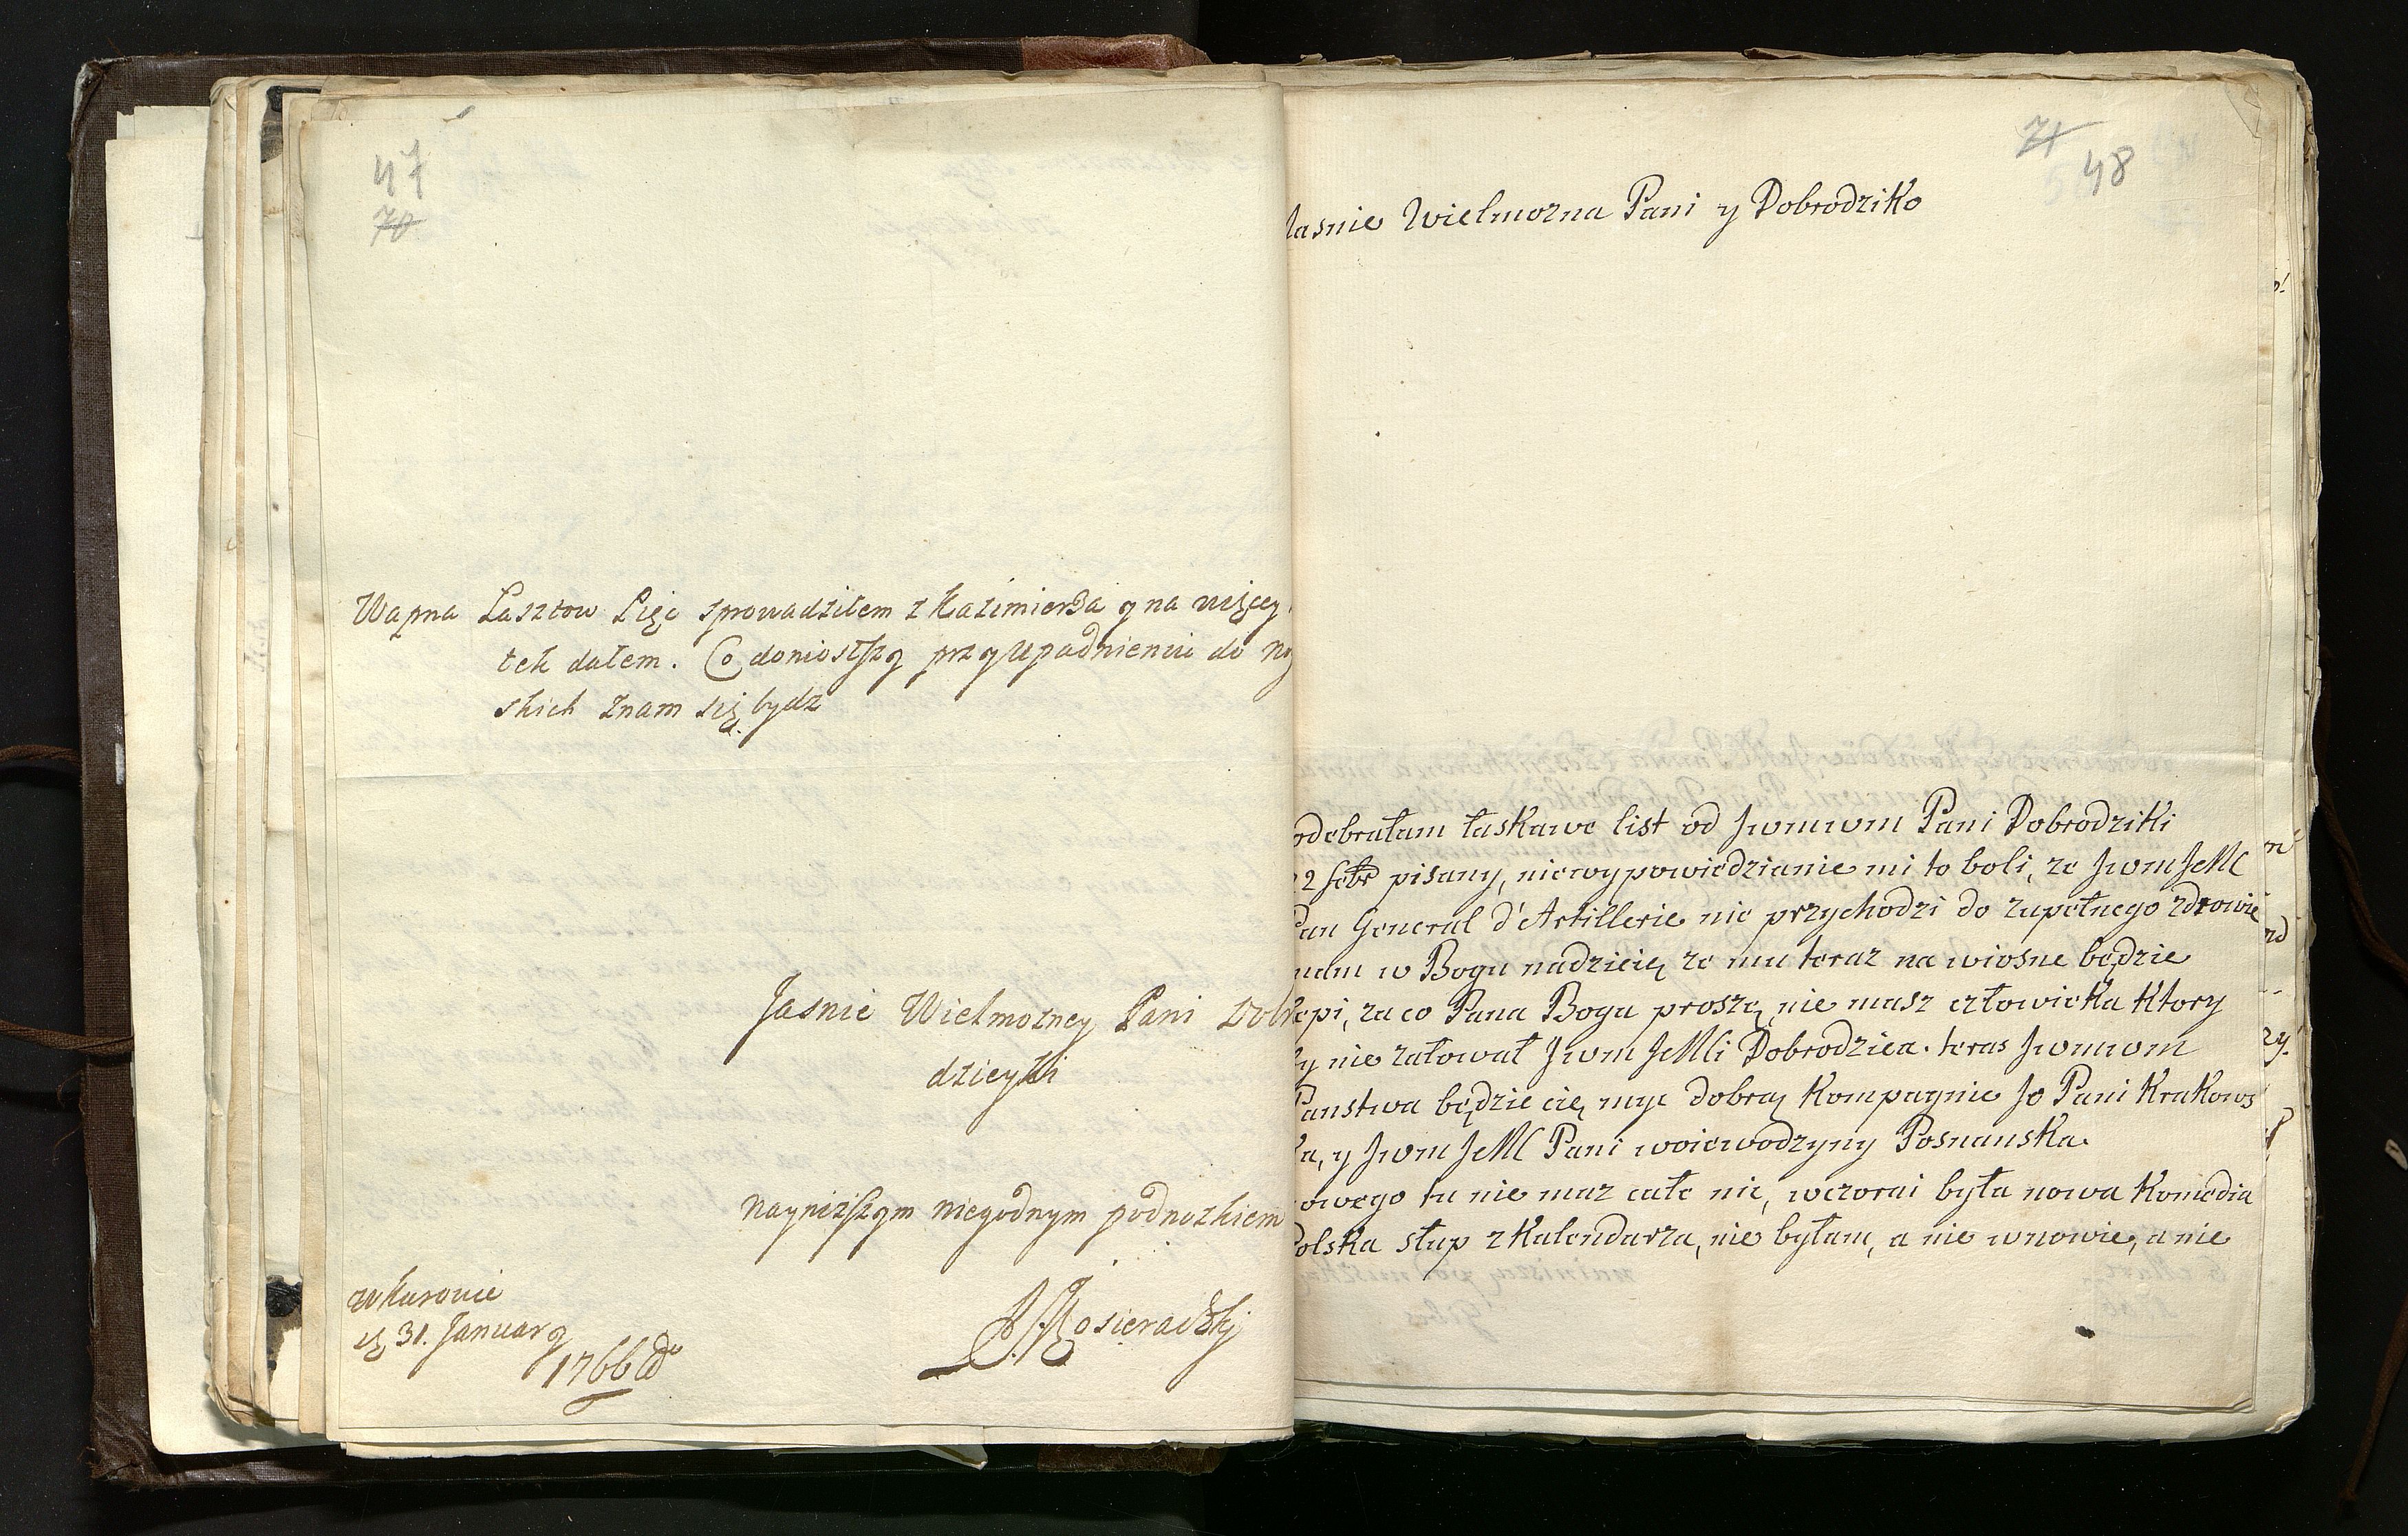 47
70
Wapna Lasztow Pięc sprowadziłem z Kazimierza y na więcy
tek dałem. Co doniosłszy przy Upadnieniu do
skich znam się bydz
Jasnie Wielmozney Pani Dob
dzieyki
nayniższym niegodnym podnozkiem
w Kurowie
31. January
1766
71
48
Jasnie Wielmozna Pani y Dobrodziko
odebrałam łaskawe list od Jwmwm Pani Dobrodziki
22 febr pisany, niewypowiedzianie mi to boli, ze Jwm JeMC
Pan General d'Artillerie nie przychodzi do zupełnego zdrowie
mam w Bogu nadzieię ze mu teraz na wiosne będzie
lepi, za co Pana Boga proszę, nie masz człowieka Ktory
by nie załował Jwm JeMCi Dobrodziea. teras Jwmwm
Panstwa będzie cię myc dobraę Kompagnie Jo Pani Krakows
ka, y Jwm JeMC Pani woiewodzyny Posnanska.
owego tu nie maz całe nic, wczorai była nowa Komedia
Polska słup z Kalendarza, nie byłam, a nie wnowie, a nie